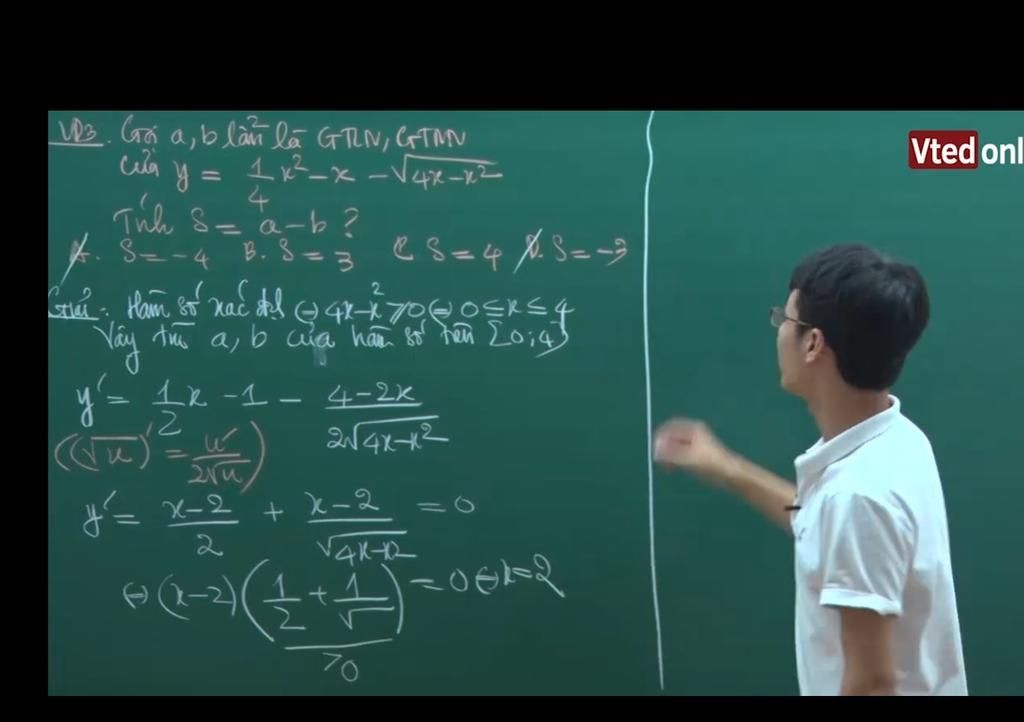 VD3. Gọi a, b lần² là GTLN, GTNN
của y = 1/4 x² - x - √(4x-x²)
Tính S = a - b ?
A. S = -4 B. S = 3 C. S = 4 D. S = -3
Giải: Hàm số xác định ⇔ 4x-x² ≥ 0 ⇔ 0 ≤ x ≤ 4
Vậy tìm a, b của hàm số trên [0;4]
y' = 1/2 x - 1 - (4-2x)/(2√(4x-x²))
((√u)' = u'/(2√u))
y' = (x-2)/2 + (x-2)/√(4x-x²) = 0
⇔ (x-2)(1/2 + 1/√) = 0 ⇔ x = 2
>0
Vted onl